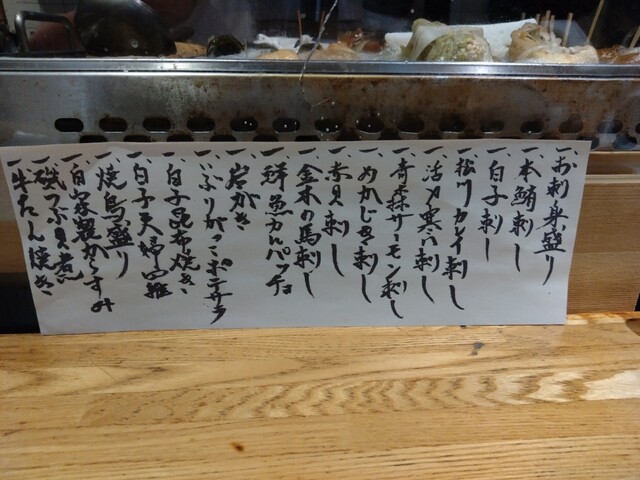 一、お刺身盛り
一、本鮪刺し
一、白子刺し
一、松川カレイ刺し
一、活〆寒六刺し
一、青森サーモン刺し
一、めかじき刺し
一、赤貝刺し
一、金木の馬刺し
一、鮮魚カルパッチョ
一、岩がき
一、いぶりがっこポテサラ
一、白子昆布焼き
一、白子天婦羅
一、焼鳥盛り
一、自家製からすみ
一、磯つぶ貝煮
一、牛たん焼き